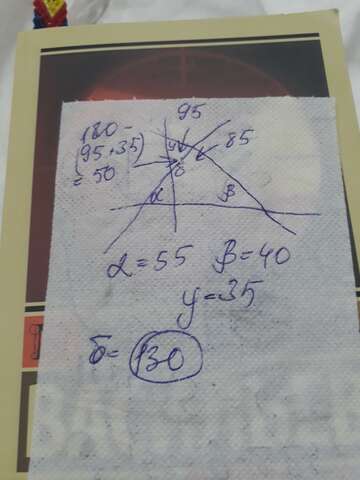 95
180 -
(95+35)
= 50
85
γ
δ
α
β
α = 55 β = 40
γ = 35
δ = 130